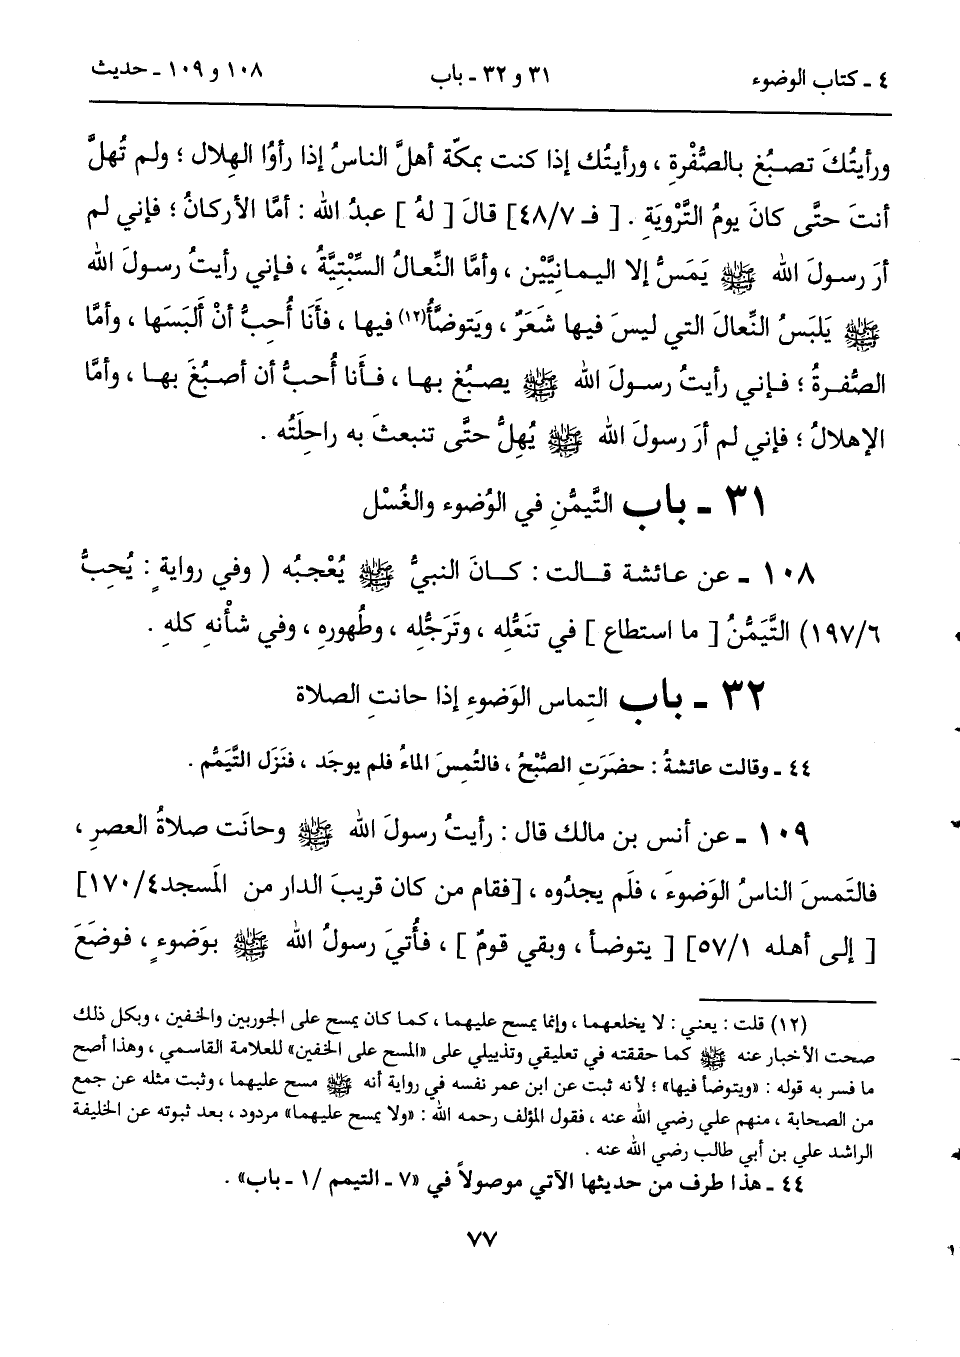 ٤ ـ كتاب الوضوء ٣١ و ٣٢ ـ باب ١٠٨ و ١٠٩ ـ حديث
ورأيتُكَ تصبُغ بالصُّفْرةِ ، ورأيتُك إذا كنت بمكّة أهلَّ الناسُ إذا رأَوُا الهِلال ؛ ولم تُهلَّ
أنتَ حتَّى كانَ يومُ التَّرْوِيَةِ . [ فـ ٤٨/٧] قالَ [ لهُ ] عبدُ الله : أمَّا الأركانُ ؛ فإني لم
أرَ رسولَ الله ﷺ يَمَسُّ إلا اليمانيَّيْن ، وأمَّا النِّعالُ السِّبْتِيَّةُ ، فإني رأيتُ رسولَ الله
ﷺ يَلبَسُ النِّعالَ التي ليسَ فيها شعَرٌ ، ويَتوضَّأُ(١٢) فيها ، فأَنَا أُحِبُّ أنْ ألبَسَها ، وأمَّا
الصُّفرةُ ؛ فإني رأيتُ رسولَ الله ﷺ يصبُغ بها ، فأنا أُحبُّ أن أصبُغَ بها ، وأمَّا
الإهلالُ ؛ فإني لم أرَ رسولَ الله ﷺ يُهِلُّ حتَّى تنبعثَ به راحِلَتُه .
٣١ ـ باب التَّيمُّنِ في الوُضوء والغُسْل
١٠٨ ـ عن عائشة قالت : كانَ النبيُّ ﷺ يُعْجبُه ( وفي روايةٍ : يُحِبُّ
١٩٧/٦) التَّيَمُّنُ [ ما استطاع ] في تنَعُّلِه ، وتَرَجُّلِه ، وطُهورِهِ ، وفي شأْنهِ كلهِ .
٣٢ ـ باب التِماس الوَضوءِ إذا حانتِ الصلاة
٤٤ ـ وقالت عائشةُ : حضَرَتِ الصُّبْحُ ، فالتُمِسَ الماءُ فلم يوجَد ، فنَزَل التَّيَمُّم .
١٠٩ ـ عن أنس بن مالك قال : رأيتُ رسولَ الله ﷺ وحانَت صلاةُ العصرِ ،
فالتَمسَ الناسُ الوَضوءَ ، فلَم يجدُوه ، [فقام من كان قريبَ الدار من المَسجد١٧٠/٤]
[ إلى أهله ٥٧/١] [ يتوضأ ، وبقي قومٌ ] ، فأُتيَ رسولُ الله ﷺ بوَضوءٍ ، فوضَعَ
(١٢) قلت : يعني : لا يخلعهما ، وإنما يمسح عليهما ، كما كان يمسح على الجوربين والخفين ، وبكل ذلك
صحت الأخبار عنه ﷺ كما حققته في تعليقي وتذييلي على «المسح على الخفين» للعلامة القاسمي ، وهذا أصح
ما فسر به قوله : «ويتوضأ فيها» ؛ لأنه ثبت عن ابن عمر نفسه في رواية أنه ﷺ مسح عليهما ، وثبت مثله عن جمع
من الصحابة ، منهم علي رضي الله عنه ، فقول المؤلف رحمه الله : «ولا يمسح عليهما» مردود ، بعد ثبوته عن الخليفة
الراشد علي بن أبي طالب رضي الله عنه .
٤٤ ـ هذا طرف من حديثها الآتي موصولاً في «٧ ـ التيمم /١ ـ باب» .
٧٧